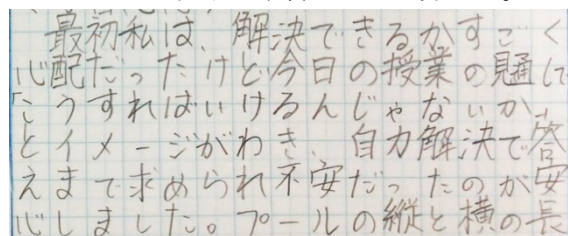 最初私は、解決できるかすごく
心配だったけど今日の授業の見通して
「こうすればいけるんじゃないか」
とイメージがわき、自力解決で答
えまで求められ不安だったのが安
心しました。プールの縦と横の長